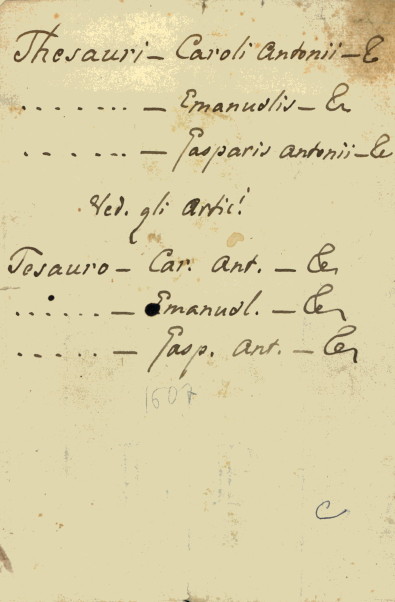 Thesauri – Caroli Antonii – &
........ – Emanuelis – &
...... – Gasparis Antonii – &
Ved. gli Artic!
Tesauro – Car. Ant. – &
...... – Emanuel. – &
...... – Gasp. Ant. – &
1607
C